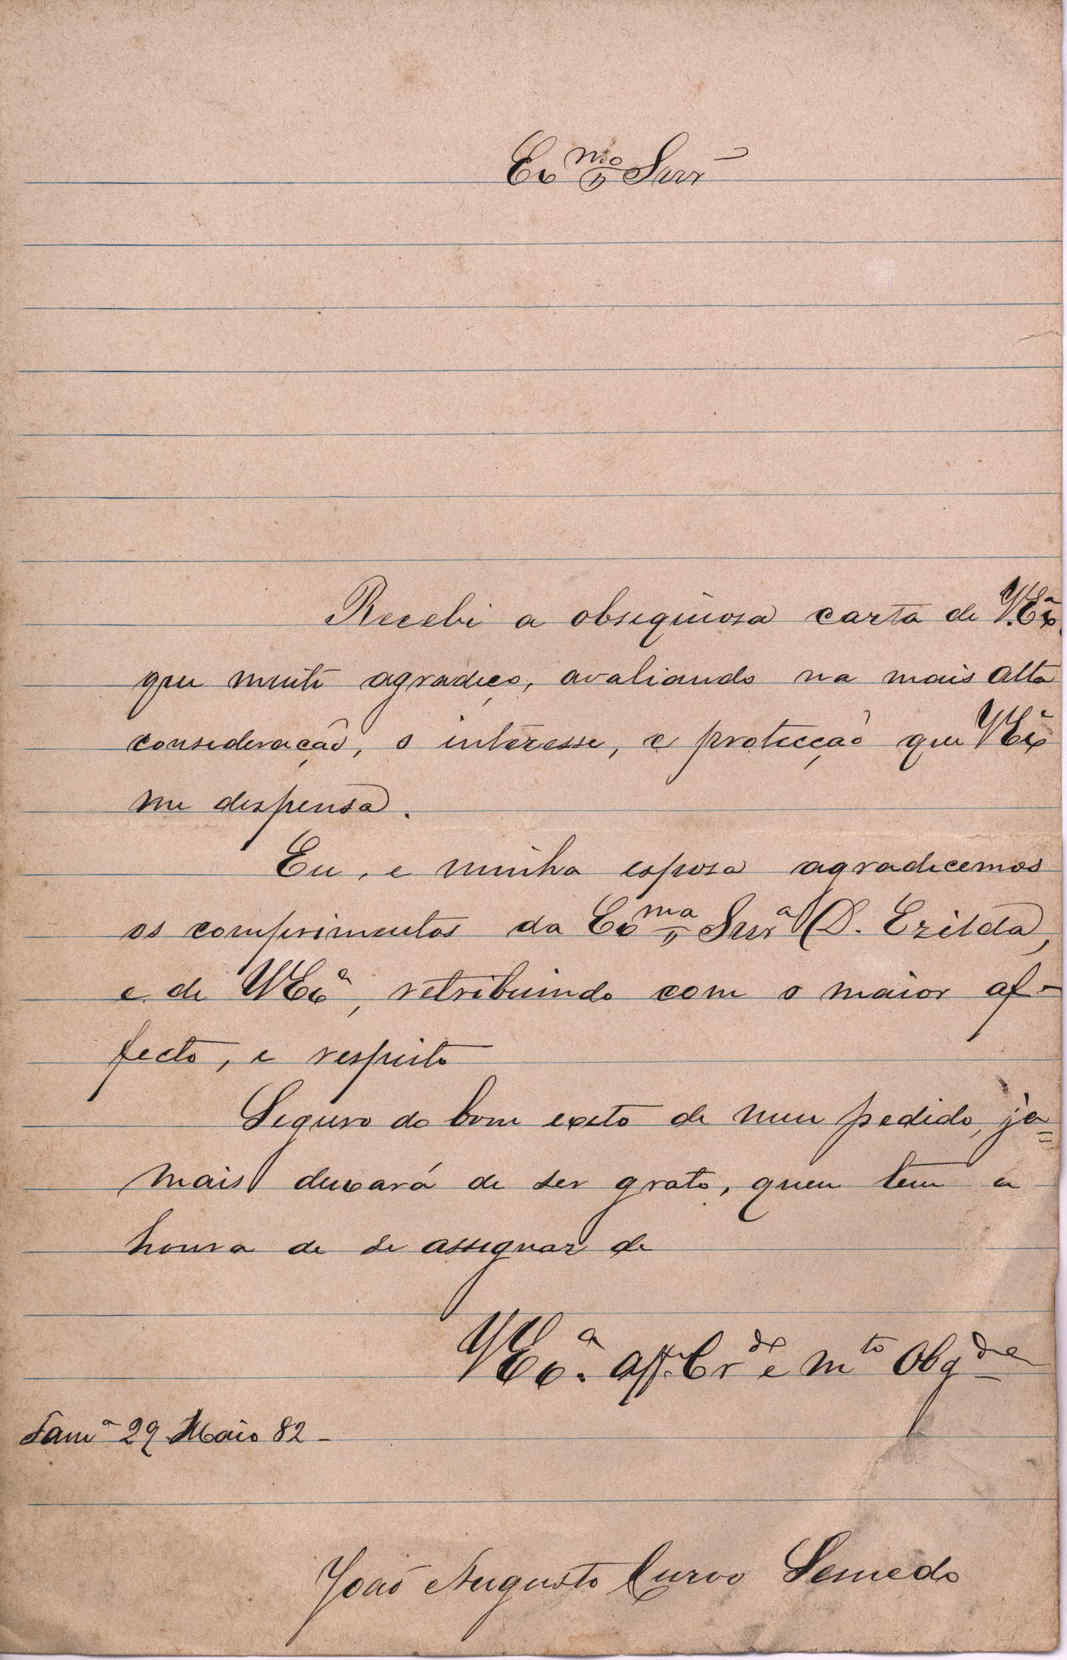 Exmo Snr
Recebi a obsequiosa carta de V.Exa
que muito agradeço, avaliando na mais alta
consideração, o interesse, e protecção que VExa
me dispensa.
Eu, e minha esposa agradecemos
os comprimentos da Exma Snra D. Ezilda,
e de VExa, retribuindo com o maior af-
fecto, e respeito
Seguro do bom exito de meu pedido, ja=
mais deixará de ser grato, quem tem a
honra de se assignar de
VExa. Aff. Cr.de e mto Obgdo
29 Maio 82 -
João Augusto Curvo Semedo